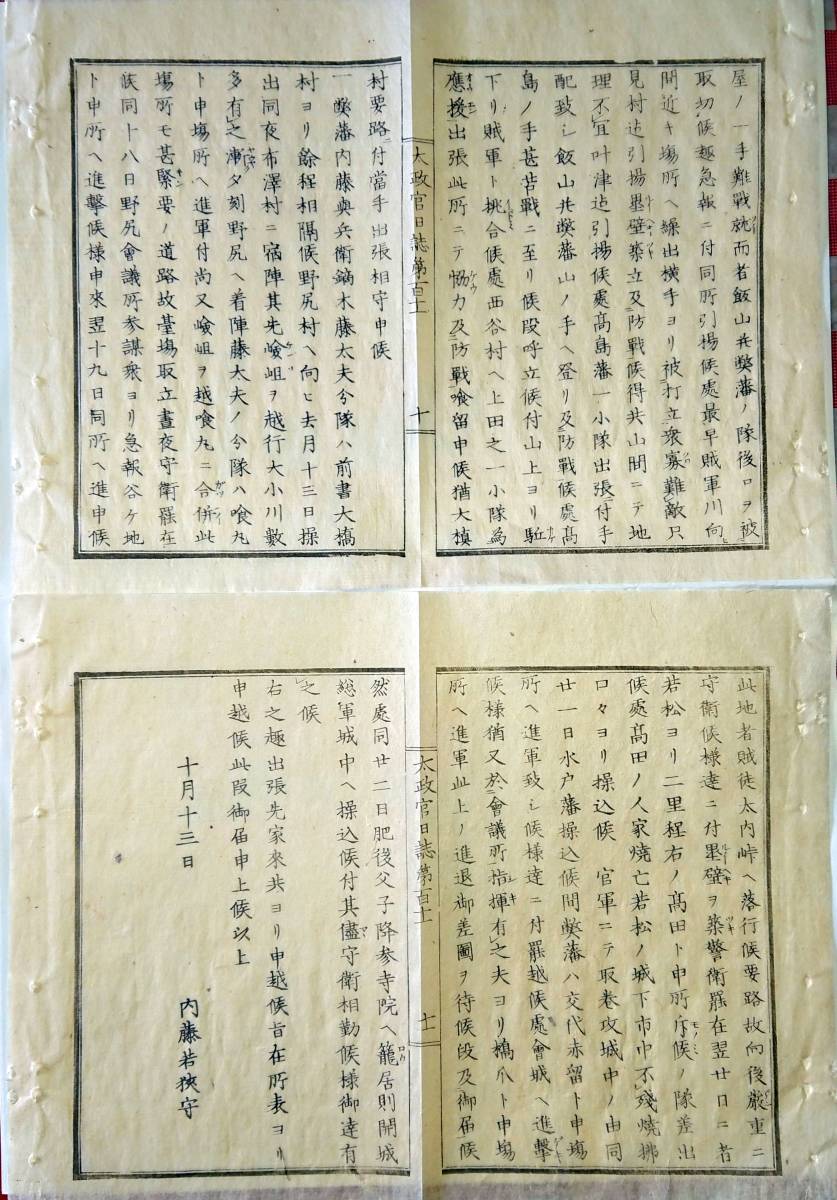 屋ノ一手難戦就而者飯山共弊藩ノ隊後口ヲ被
取切候趣急報ニ付同所引揚候處最早賊軍川向
間近キ場所ヘ繰出横手ヨリ被打立衆寡難敵只
見村迄引揚塁壁築立及防戦候得共山間ニテ地
理不宜叶津迄引揚候處髙島藩一小隊出張付手
配致シ飯山共弊藩山ノ手ヘ登リ及防戦候處髙
島ノ手甚苦戦ニ至リ候段呼立候付山上ヨリ駈
下リ賊軍ト挑合候處西谷村ヘ上田之一小隊為
應援出張此所ニテ恊力及防戦喰留申候猶大槙
太政官日誌第百十一
十
村要路付當手出張相守申候
一弊藩内藤與兵衛鏑木藤太夫分隊ハ前書大橋
村ヨリ餘程相隔候野尻村ヘ向ヒ去月十三日操
出同夜布澤村ニ宿陣其先嶮岨ヲ越行大小川數
多有之漸夕刻野尻ヘ着陣藤大夫ノ分隊ハ喰丸
ト申塲所ヘ進軍付尚又嶮岨ヲ越喰丸ニ合併此
塲所モ甚緊要ノ道路故臺場取立晝夜守衛罷在
候同十八日野尻會議所参謀衆ヨリ急報谷ケ地
ト申所ヘ進撃候様申來翌十九日同所ヘ進申候
此地者賊徒大内峠ヘ落行候要路故向後嚴重ニ
守衛候様達ニ付塁壁ヲ築警衛罷在翌廿日ニ者
若松ヨリ二里程右ノ髙田ト申所斥候ノ隊差出
候處髙田ノ人家焼亡若松ノ城下市中不殘焼拂
口々ヨリ操込候　官軍ニテ取巻攻城中ノ由同
廿一日水户藩操込候間弊藩ハ交代赤留ト申塲
所ヘ進軍致シ候様達ニ付罷越候處會城ヘ進撃
候様猶又於會議所指揮有之夫ヨリ橋爪ト申塲
所ヘ進軍此上ノ進退御差圖ヲ待候段及御届候
太政官日誌第百十一
十一
然處同廿二日肥後父子降参寺院ヘ籠居則開城
総軍城中ヘ操込候付其儘守衛相勤候様御達有
之候
右之趣出張先家來共ヨリ申越候旨在所表ヨリ
申越候此段御届申上候以上
十月十三日
内藤若狭守